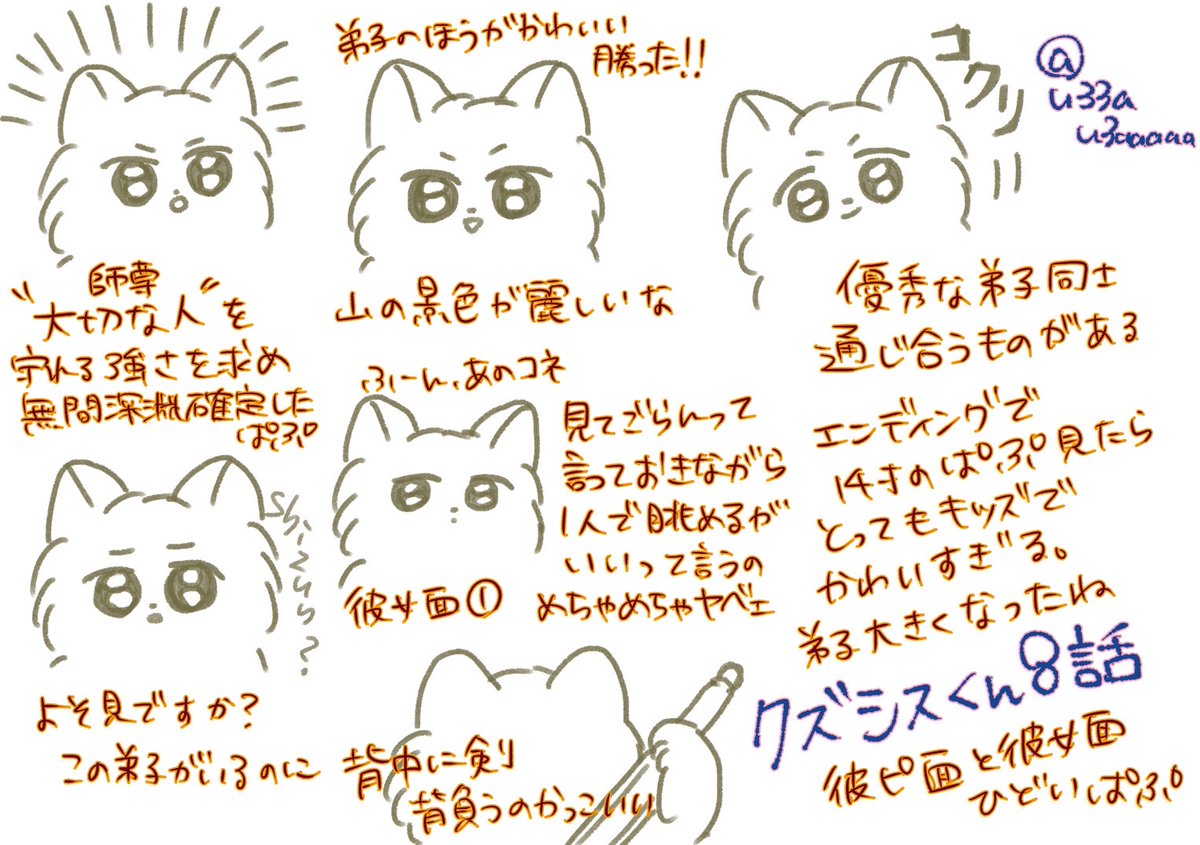 師尊
"大切な人"を
守れる強さを求め
無間深淵確定した
ぱぷ
弟子のほうがかわいい
勝った!!
山の景色が麗しいな
コクリ
@
u33a
u3aaaaa
優秀な弟子同士
通じ合うものがある
よそ見ですか?
この弟子がいるのに
ふーん、あのコネ
彼女面①
見てごらんって
言っておきながら
1人で眺めるが
いいって言うの
めちゃめちゃヤベェ
背中に剣
背負うのかっこいい
エンディングで
14才のぱぷ見たら
とってもキッズで
かわいすぎる。
弟子大きくなったね
クズシスくん8話
彼ピ面と彼女面
ひどいぱぷ